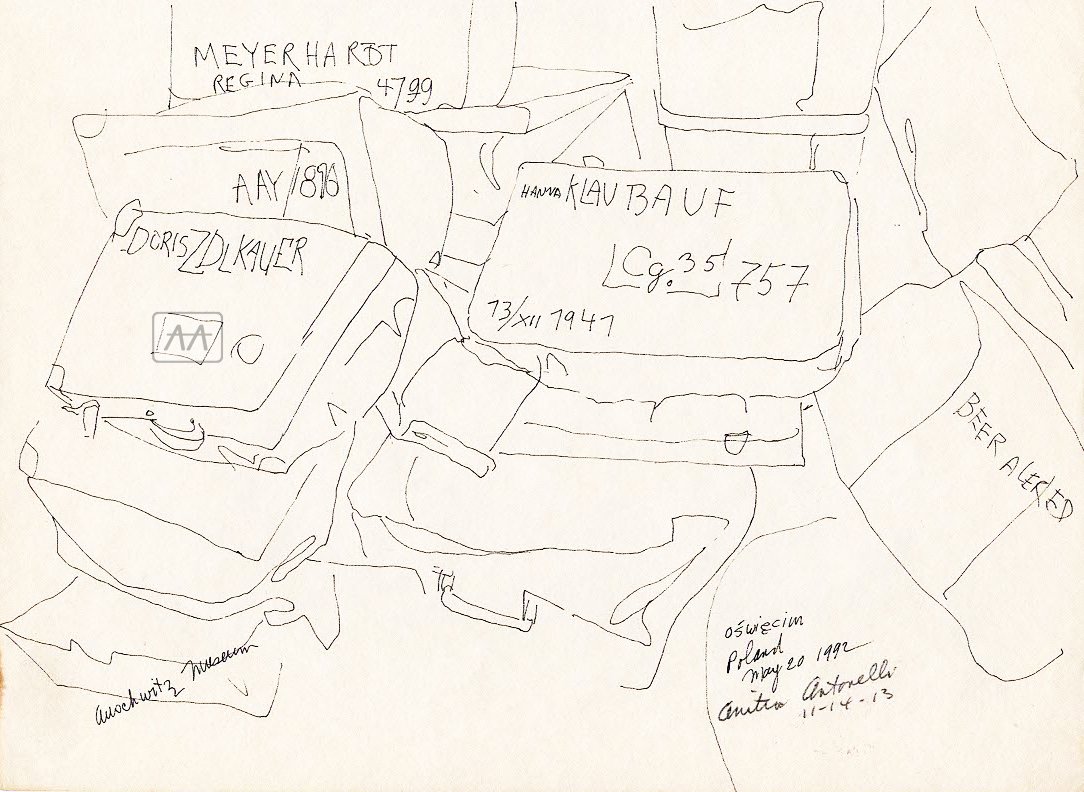 MEYERHARDT
REGINA 4799
AAY/896
DORIS ZDLKAUER
HANNA KLAUBAUF
Cg.35 757
13/XII 1941
AA
BEER ALERED
Auschwitz Museum
Oświęcim
Poland
May 20 1992
Anitra Antonelli
11-14-13